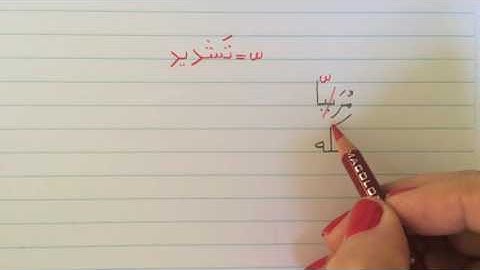 ّ = تَشدید
مُرَبّا
کله